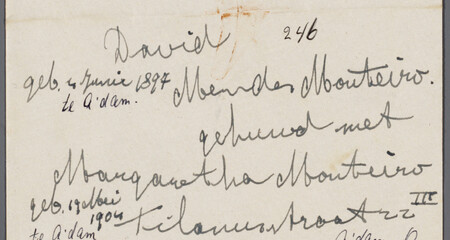 David 246
geb. 4 Junie 1897 Mendes Monteiro.
te A'dam.
gehuwd met
Margaretha Monteiro
geb. 19 Mei Tilanusstraat 22 III
1904
te A'dam A'dam O